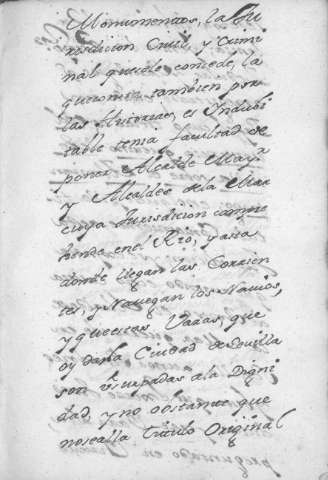 Monumentos, la Ju
risdicion Civil, y Crimi
nal que se le concede, la
que consta tambien por
las Historias, es Indubi
table tenia facultad de
poner Alcalde Mayʳ
y Alcaldes de la Mar
cuya Jurisdicion compre
hende en el Rio, y asta
donde llegan las Corrien
tes, y Navegan los Navios,
y que estas Varas, que
oy da la Ciudad de Sevilla
son usurpadas a la Digni
dad, y no obstante que
no se alla titulo Original